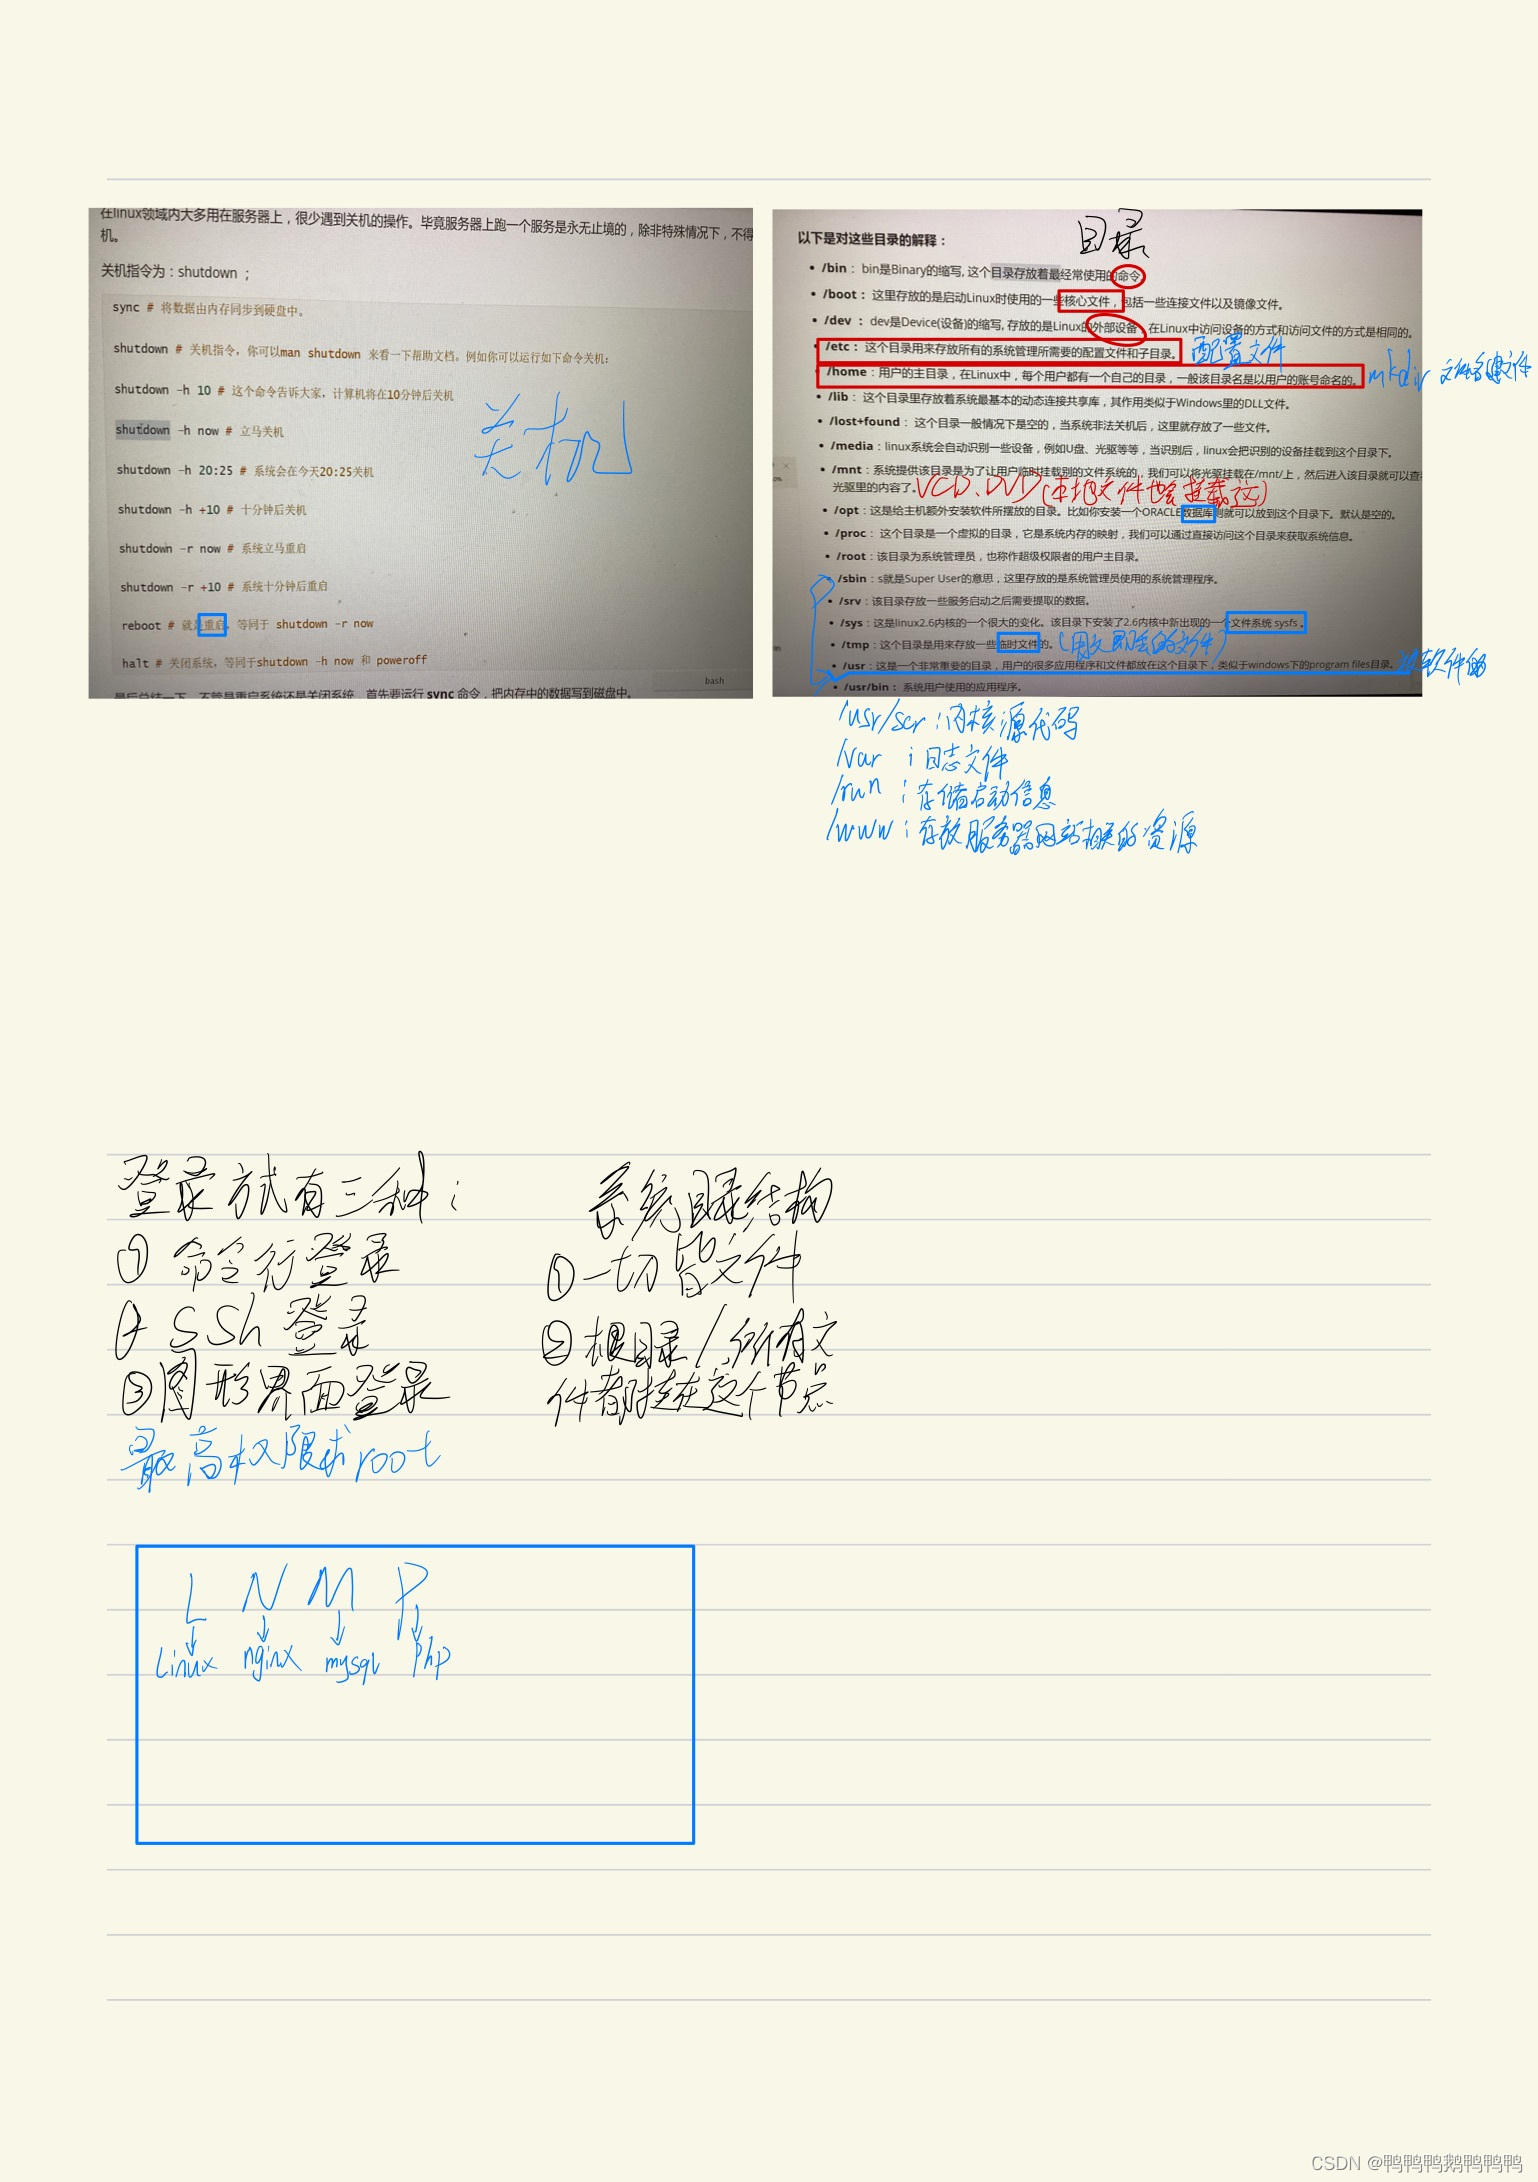 在linux领域内大多用在服务器上，很少遇到关机的操作。毕竟服务器上跑一个服务是永无止境的，除非特殊情况下，不得
机。
关机指令为：shutdown ；
sync # 将数据由内存同步到硬盘中。
shutdown # 关机指令，你可以man shutdown 来看一下帮助文档。例如你可以运行如下命令关机：
shutdown -h 10 # 这个命令告诉大家，计算机将在10分钟后关机
shutdown -h now # 立马关机
关机
shutdown -h 20:25 # 系统会在今天20:25关机
shutdown -h +10 # 十分钟后关机
shutdown -r now # 系统立马重启
shutdown -r +10 # 系统十分钟后重启
reboot # 就是重启，等同于 shutdown -r now
halt # 关闭系统，等同于shutdown -h now 和 poweroff
bash
最后总结一下，不管是重启系统还是关闭系统，首先要运行 sync 命令，把内存中的数据写到磁盘中。
目录
以下是对这些目录的解释：
• /bin： bin是Binary的缩写, 这个目录存放着最经常使用的命令
• /boot： 这里存放的是启动Linux时使用的一些核心文件，包括一些连接文件以及镜像文件。
• /dev ： dev是Device(设备)的缩写, 存放的是Linux的外部设备，在Linux中访问设备的方式和访问文件的方式是相同的。
• /etc： 这个目录用来存放所有的系统管理所需要的配置文件和子目录。 配置文件
• /home：用户的主目录，在Linux中，每个用户都有一个自己的目录，一般该目录名是以用户的账号命名的。 mkdir
• /lib： 这个目录里存放着系统最基本的动态连接共享库，其作用类似于Windows里的DLL文件。
• /lost+found： 这个目录一般情况下是空的，当系统非法关机后，这里就存放了一些文件。
• /media：linux系统会自动识别一些设备，例如U盘、光驱等等，当识别后，linux会把识别的设备挂载到这个目录下。
• /mnt：系统提供该目录是为了让用户临时挂载别的文件系统的，我们可以将光驱挂载在/mnt/上，然后进入该目录就可以查
光驱里的内容了。 VCD、DVD(本地文件也会挂载这)
• /opt：这是给主机额外安装软件所摆放的目录。比如你安装一个ORACLE数据库则就可以放到这个目录下。默认是空的。
• /proc： 这个目录是一个虚拟的目录，它是系统内存的映射，我们可以通过直接访问这个目录来获取系统信息。
• /root：该目录为系统管理员，也称作超级权限者的用户主目录。
• /sbin：s就是Super User的意思，这里存放的是系统管理员使用的系统管理程序。
• /srv：该目录存放一些服务启动之后需要提取的数据。
• /sys：这是linux2.6内核的一个很大的变化。该目录下安装了2.6内核中新出现的一个文件系统 sysfs 。
• /tmp：这个目录是用来存放一些临时文件的。(用完即丢的文件)
• /usr：这是一个非常重要的目录，用户的很多应用程序和文件都放在这个目录下，类似于windows下的program files目录。
• /usr/bin： 系统用户使用的应用程序。
/usr/scr：内核源代码
/var ：日志文件
/run ：存储启动信息
/www：存放服务器网站相关的资源
登录方式有三种：
① 命令行登录
ssh 登录
③图形界面登录
最高权限 root
系统目录结构
①一切皆文件
②根目录/，所有文
件都挂在这个节点
L N M P
Linux nginx mysql php
CSDN @鸭鸭鸭鹅鸭鸭鸭